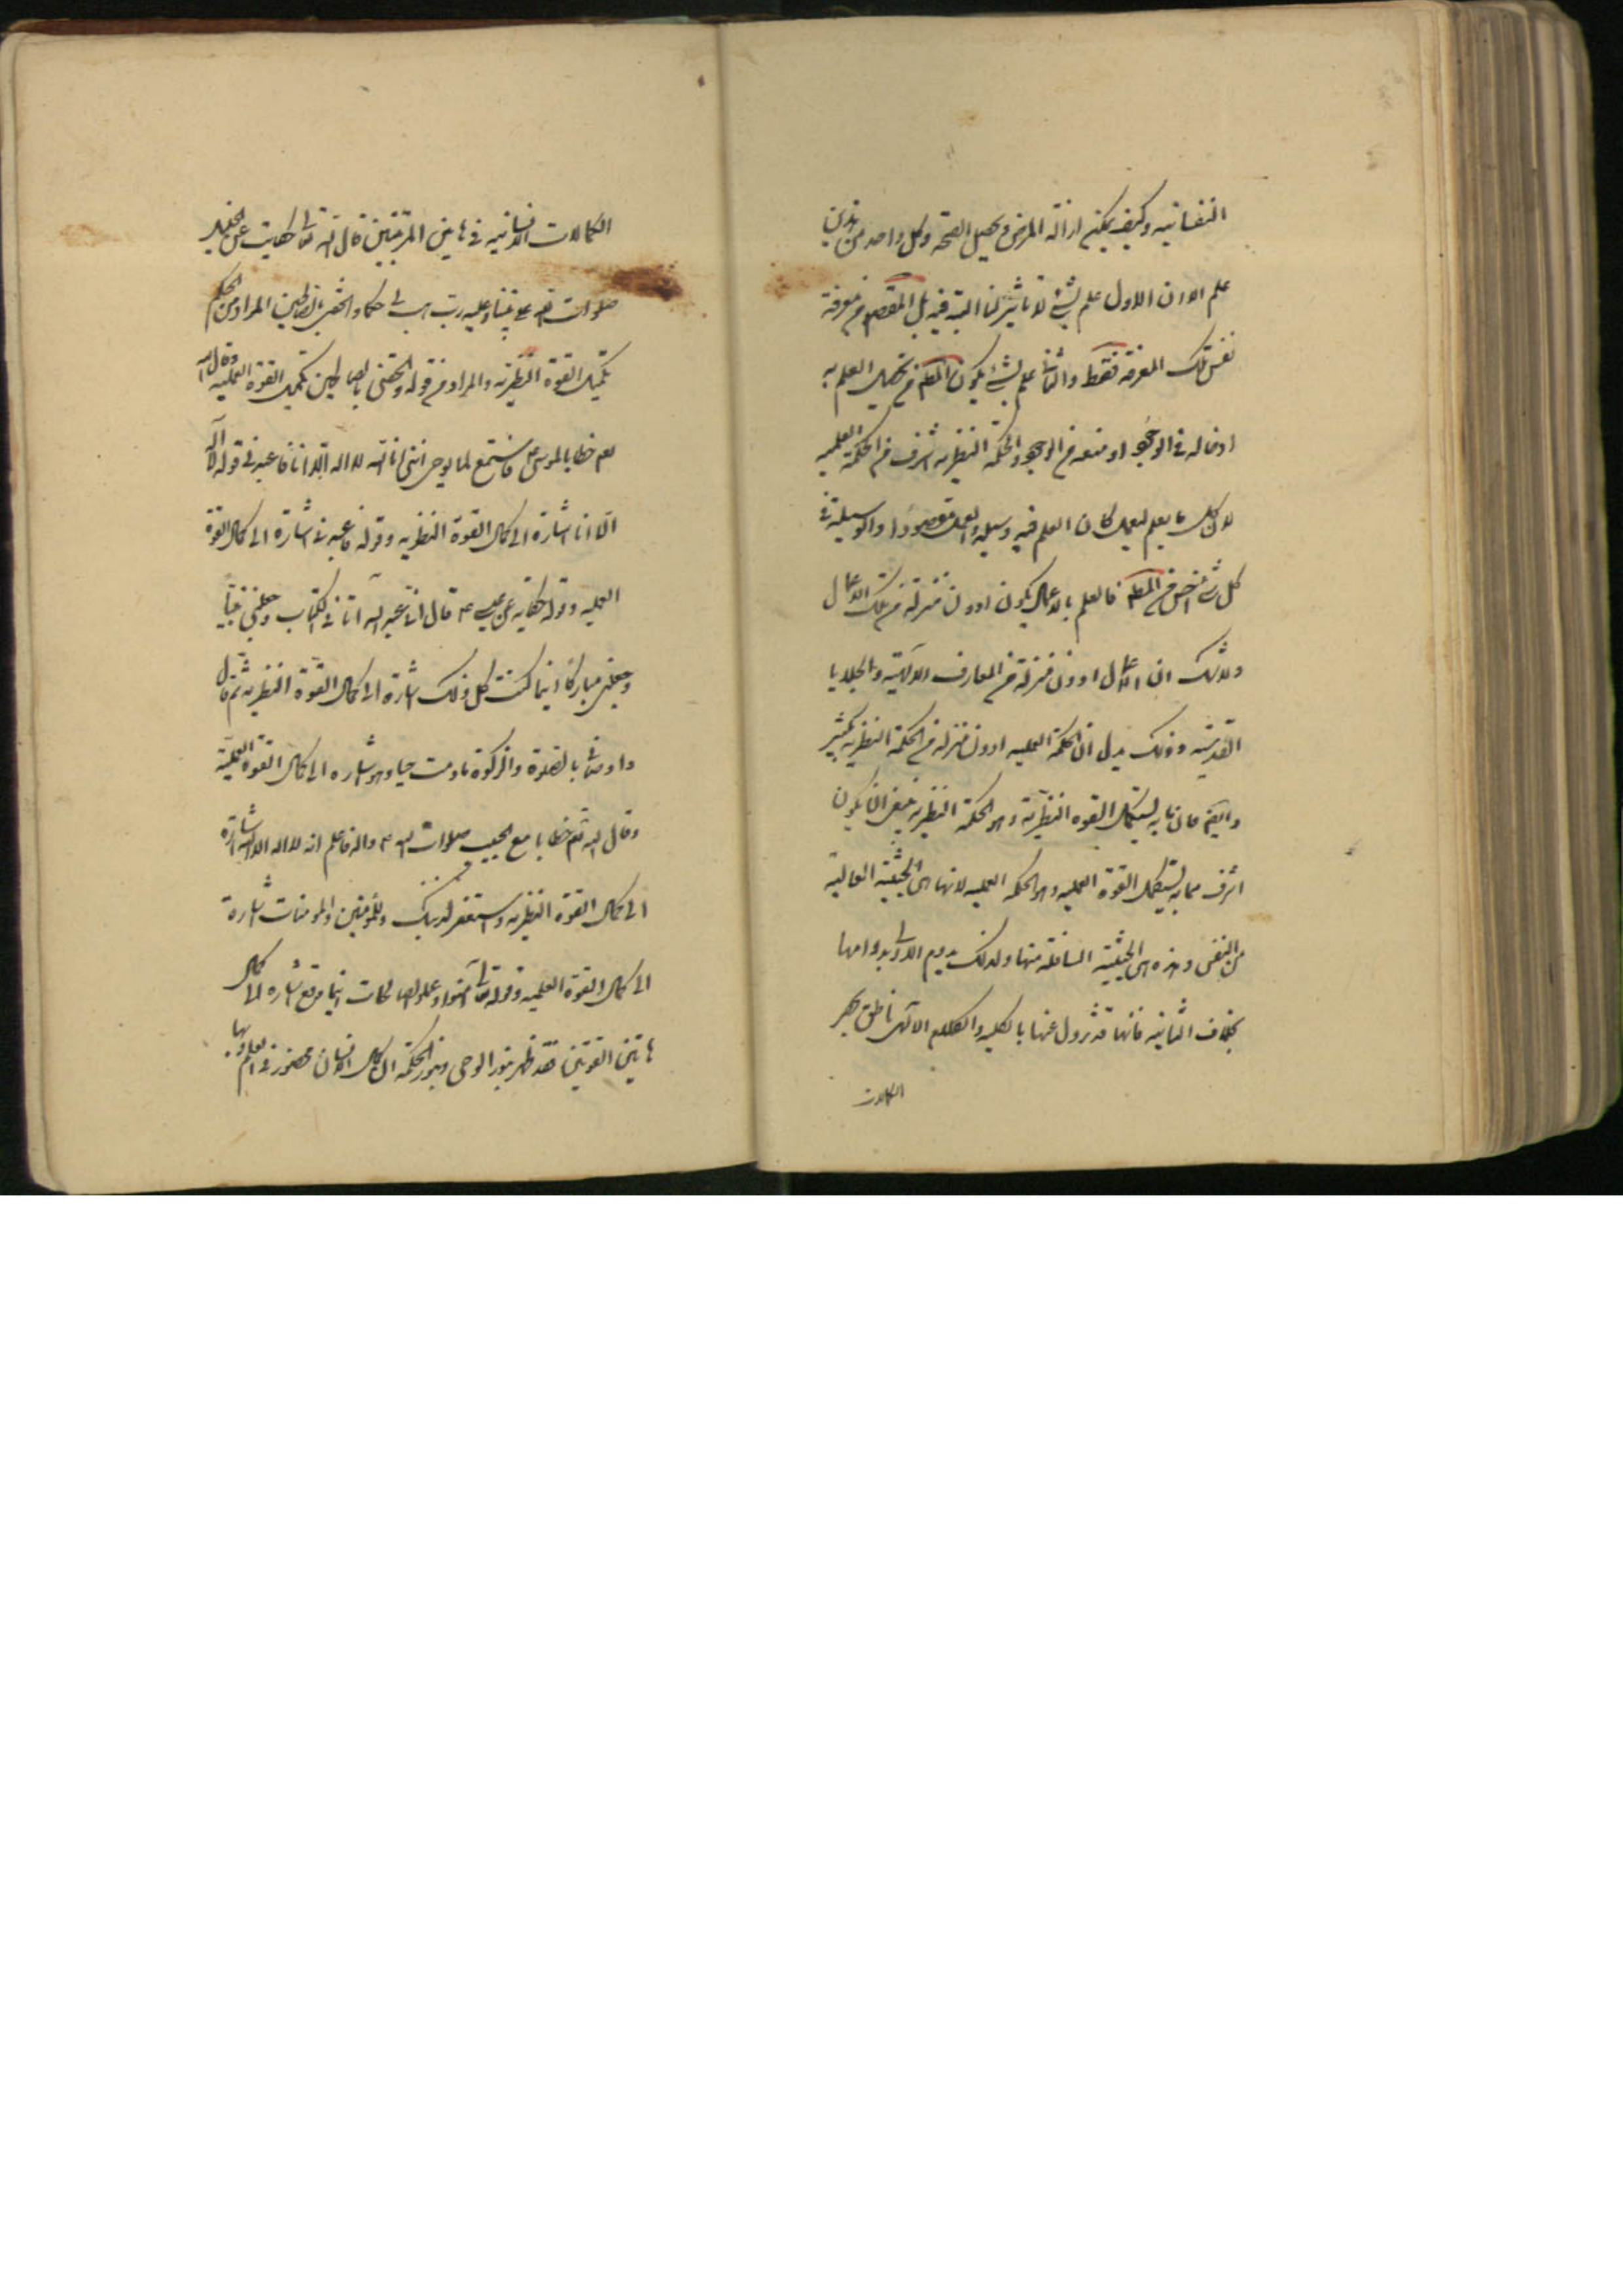 النفسانيه وكيف يمكن ازالة المرض و تحصيل الصحة وكل واحد من هذين
علم الا ان الاول علم بشئ لا تاثير لنا البتة فيه بل المقصود منه معرفة
نفس تلك المعرفة فقط والثانى علم بشئ يكون المط من تحصيل العلم به
ادخاله فى الوجود او منعه من الوجود والحكمة النظريه اشرف من الحكمة العلميه
لان كل ما يعلم ليعمل كان العلم فيه وسيلة والعمل مقصودا والوسيلة فى
كل شئ اخس من المط فالعلم بالاعمال يكون ادون منزلة من تلك الاعمال
ولا شك ان الاعمال ادون منزلة من المعارف الالهية والجلايا
القدسية وذلك يدل ان الحكمة العمليه ادون منزلة من الحكمة النظريه بكثير
وايضا فان ما به يستكمل القوه النظرية وهو الحكمة النظرية ينبغى ان يكون
اشرف مما به يستكمل القوة العمليه وهو الحكمه العمليه لانها هى الجنبة العالية
من النفس وهذه هى الجنبة السافلة منها ولذلك يدوم الاولى بدوامها
بخلاف الثانيه فانها قد تزول عنها بالكلية والكلام الالهى ناطق بحصر
الكمالات
الكمالات الانسانيه فى هاتين المرتبتين قال الله تعالى حكاية عن الخليل
صلوات الله على نبينا وعليه رب هب لى حكما والحقنى بالصالحين المراد من الحكم
تكميل القوة النظرية والمراد من قوله والحقنى بالصالحين تكميل القوة العملية وقال الله
تعم خطابا لموسى ع فاستمع لما يوحى اننى انا الله لا اله الا انا فاعبدنى قوله لا اله
الا انا اشارة الى كمال القوة النظريه وقوله فاعبدنى اشارة الى كمال القوة
العمليه وقوله حكاية عن عيسى ع قال انى عبد الله آتانى الكتاب وجعلنى نبيا
وجعلنى مباركا اينما كنت كل ذلك اشارة الى كمال القوة النظريه ثم قال
واوصانى بالصلوة والزكوة ما دمت حيا وهو اشاره الى كمال القوة العملية
وقال الله تعم خطابا مع الحبيب صلوات الله ع واله فاعلم انه لا اله الا الله اشارة
الى كمال القوة النظريه واستغفر لذنبك وللمؤمنين والمومنات اشارة
الى كمال القوة العلميه وقوله تعالى آمنوا وعملوا الصالحات اينما وقع اشاره الى كمال
هاتين القوتين فقد ظهر بنور الوحى وبنور الحكمة ان كمال الانسان محصور فى العلم بها